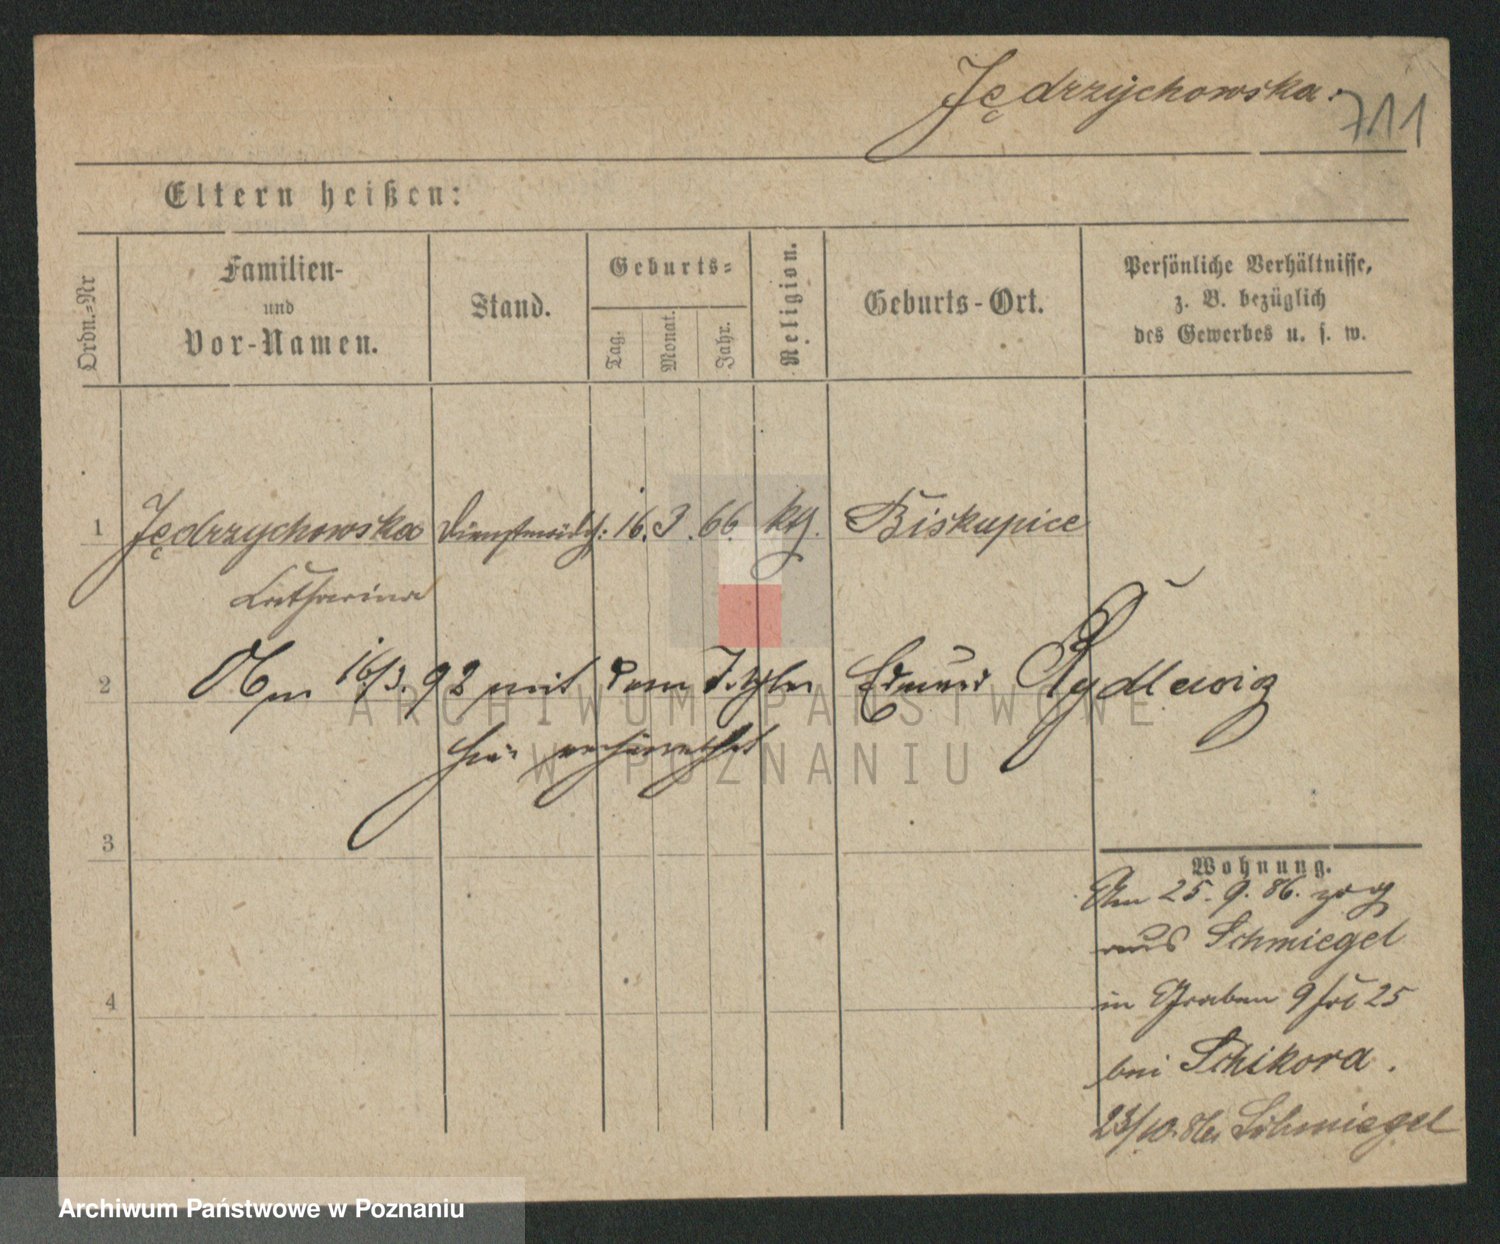 Jędrzychowska.
711
Eltern heißen:
Ordn.-Nr
Familien-
und
Vor-Namen.
Stand.
Geburts-
Tag.
Monat.
Jahr.
Religion.
Geburts-Ort.
Persönliche Verhältnisse,
z. B. bezüglich
des Gewerbes u. s. w.
1 Jędrzychowska Dienstmädch: 16. 3. 66. kth. Biskupice
Catharina
2 Am 16/3. 92 mit dem Eduard Rydlewicz
hier verheirathet
3
Wohnung.
Am 25. 9. 86. zog
aus Schmiegel
in Graben 9 25
4
bei Schikora.
23/10. 86 Schmiegel
ARCHIWUM PAŃSTWOWE
W POZNANIU
Archiwum Państwowe w Poznaniu